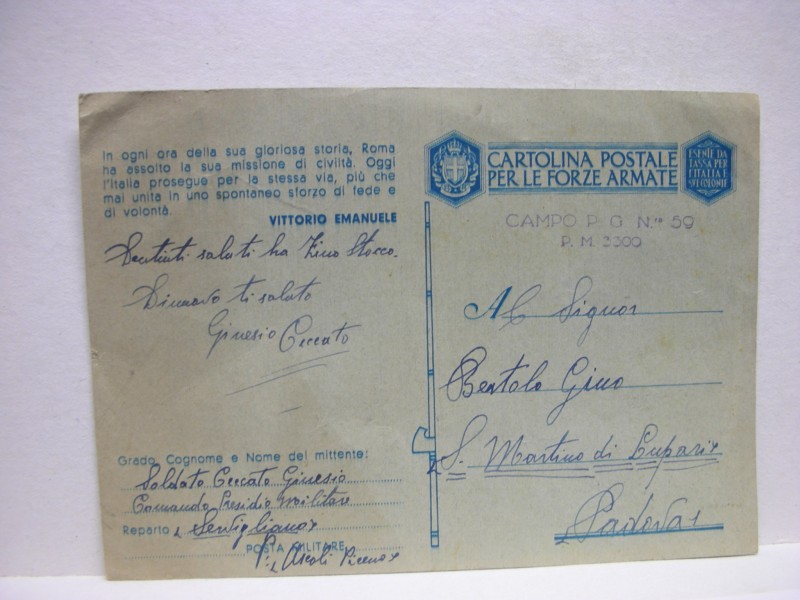 In ogni ora della sua gloriosa storia, Roma
ha assolto la sua missione di civiltà. Oggi
l'Italia prosegue per la stessa via, più che
mai unita in uno spontaneo sforzo di fede e
di volontà.
VITTORIO EMANUELE
saluti ha Zino Stocco.
Dinuovo ti saluto
Ginesio Ceccato
Grado, Cognome e Nome del mittente:
Soldato Ceccato Ginesio
Comando Presidio Militare
Reparto Servigliano
POSTA MILITARE
P. Ascoli Piceno
CARTOLINA POSTALE
PER LE FORZE ARMATE
ESENTE DA
TASSA PER
L'ITALIA E
SVI FRONTI
CAMPO P. G. N.º 59
P. M. 3300
Al Signor
Bertolo Gino
S. Martino di Lupari
Padova